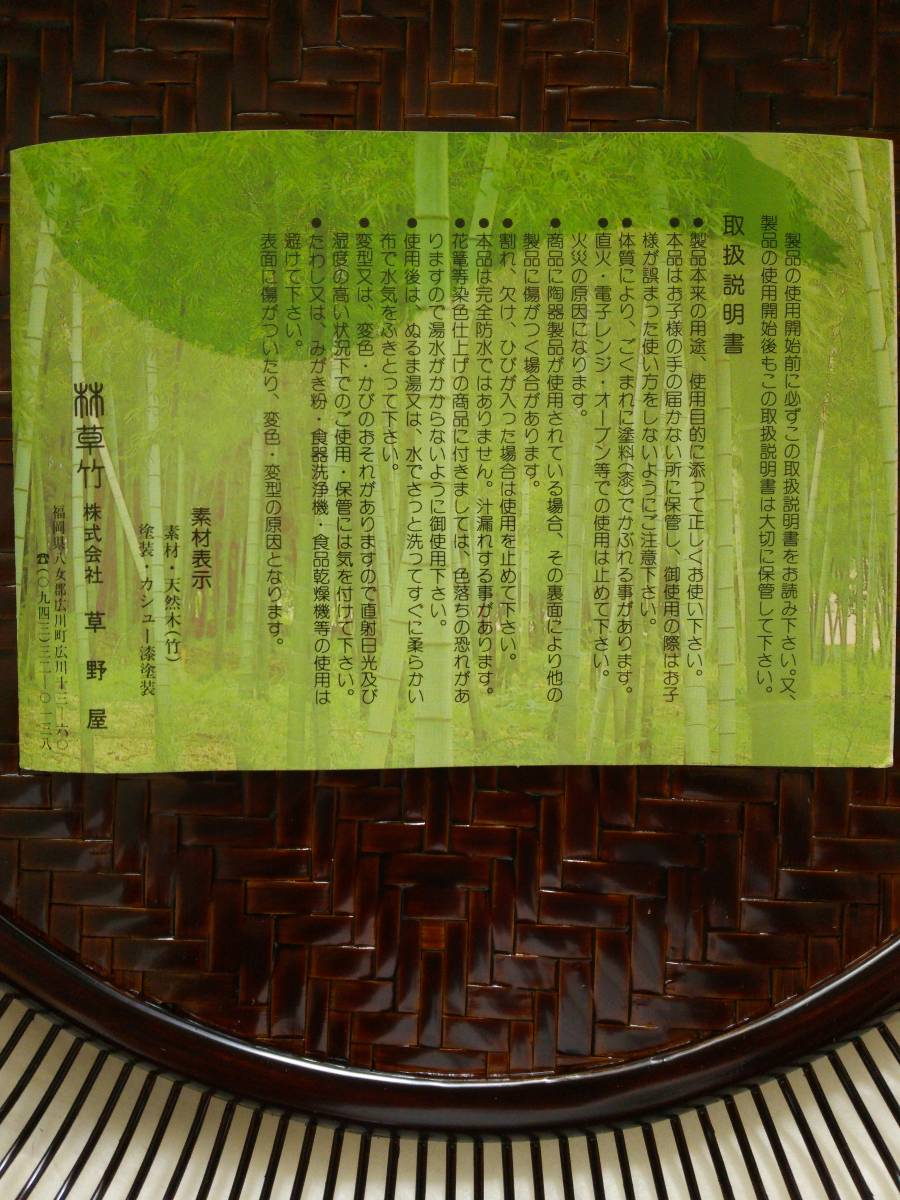 製品の使用開始前に必ずこの取扱説明書をお読み下さい。又、
製品の使用開始後もこの取扱説明書は大切に保管して下さい。
取扱説明書
●製品本来の用途、使用目的に添つて正しくお使い下さい。
●本品はお子様の手の届かない所に保管し、御使用の際はお子
様が誤まった使い方をしないようにご注意下さい。
●体質により、ごくまれに塗料(漆)でかぶれる事があります。
●直火・電子レンジ・オーブン等での使用は止めて下さい。
火災の原因になります。
●商品に陶器製品が使用されている場合、その裏面により他の
製品に傷がつく場合があります。
●割れ、欠け、ひびが入った場合は使用を止めて下さい。
●本品は完全防水ではありません。汁漏れする事があります。
●花篭等染色仕上げの商品に付きましては、色落ちの恐れがあ
りますので湯水がかからないように御使用下さい。
●使用後は、ぬるま湯又は、水でさっと洗ってすぐに柔らかい
布で水気をふきとつて下さい。
●変型又は、変色・かびのおそれがありますので直射日光及び
湿度の高い状況下でのご使用・保管には気を付けて下さい。
●たわし又は、みがき粉・食器洗浄機・食品乾燥機等の使用は
避けて下さい。
表面に傷がついたり、変色・変型の原因となります。
素材表示
素材・天然木(竹)
塗装・カシュー漆塗装
草竹 株式会社 草野屋
福岡県八女郡広川町広川十三-六〇
☎(〇九四三)三二-〇一三八